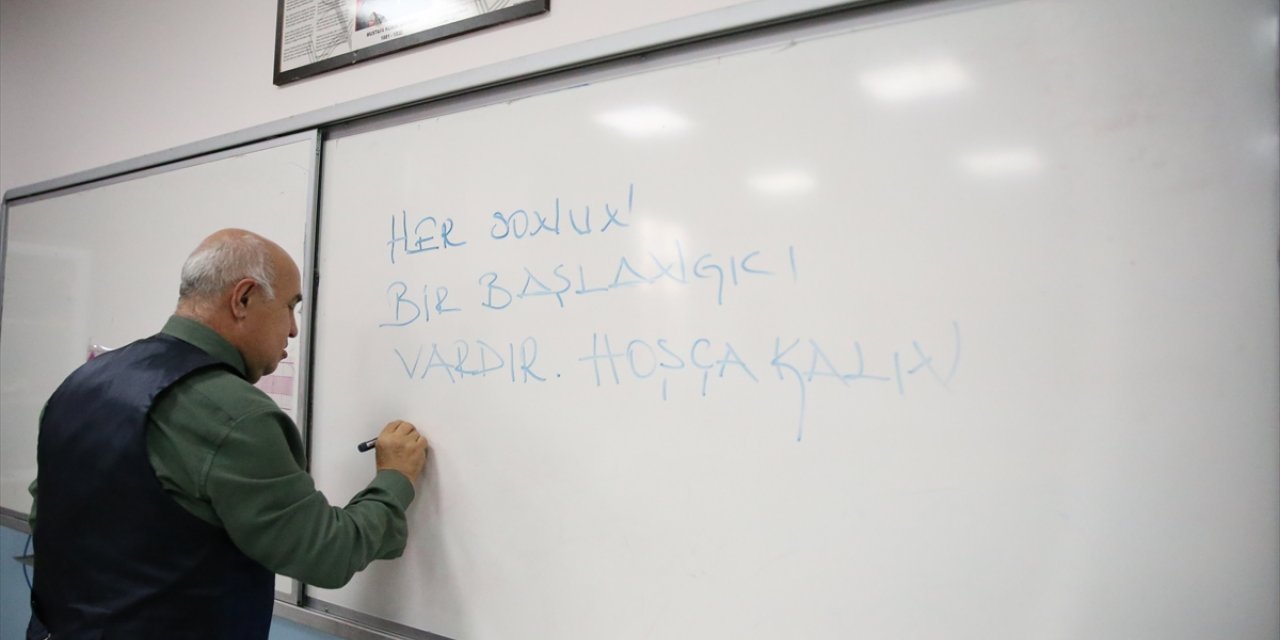 MUSTAFA KEMAL
1881-193∞
HER SONUN
BİR BAŞLANGICI
VARDIR. HOŞÇA KALIN